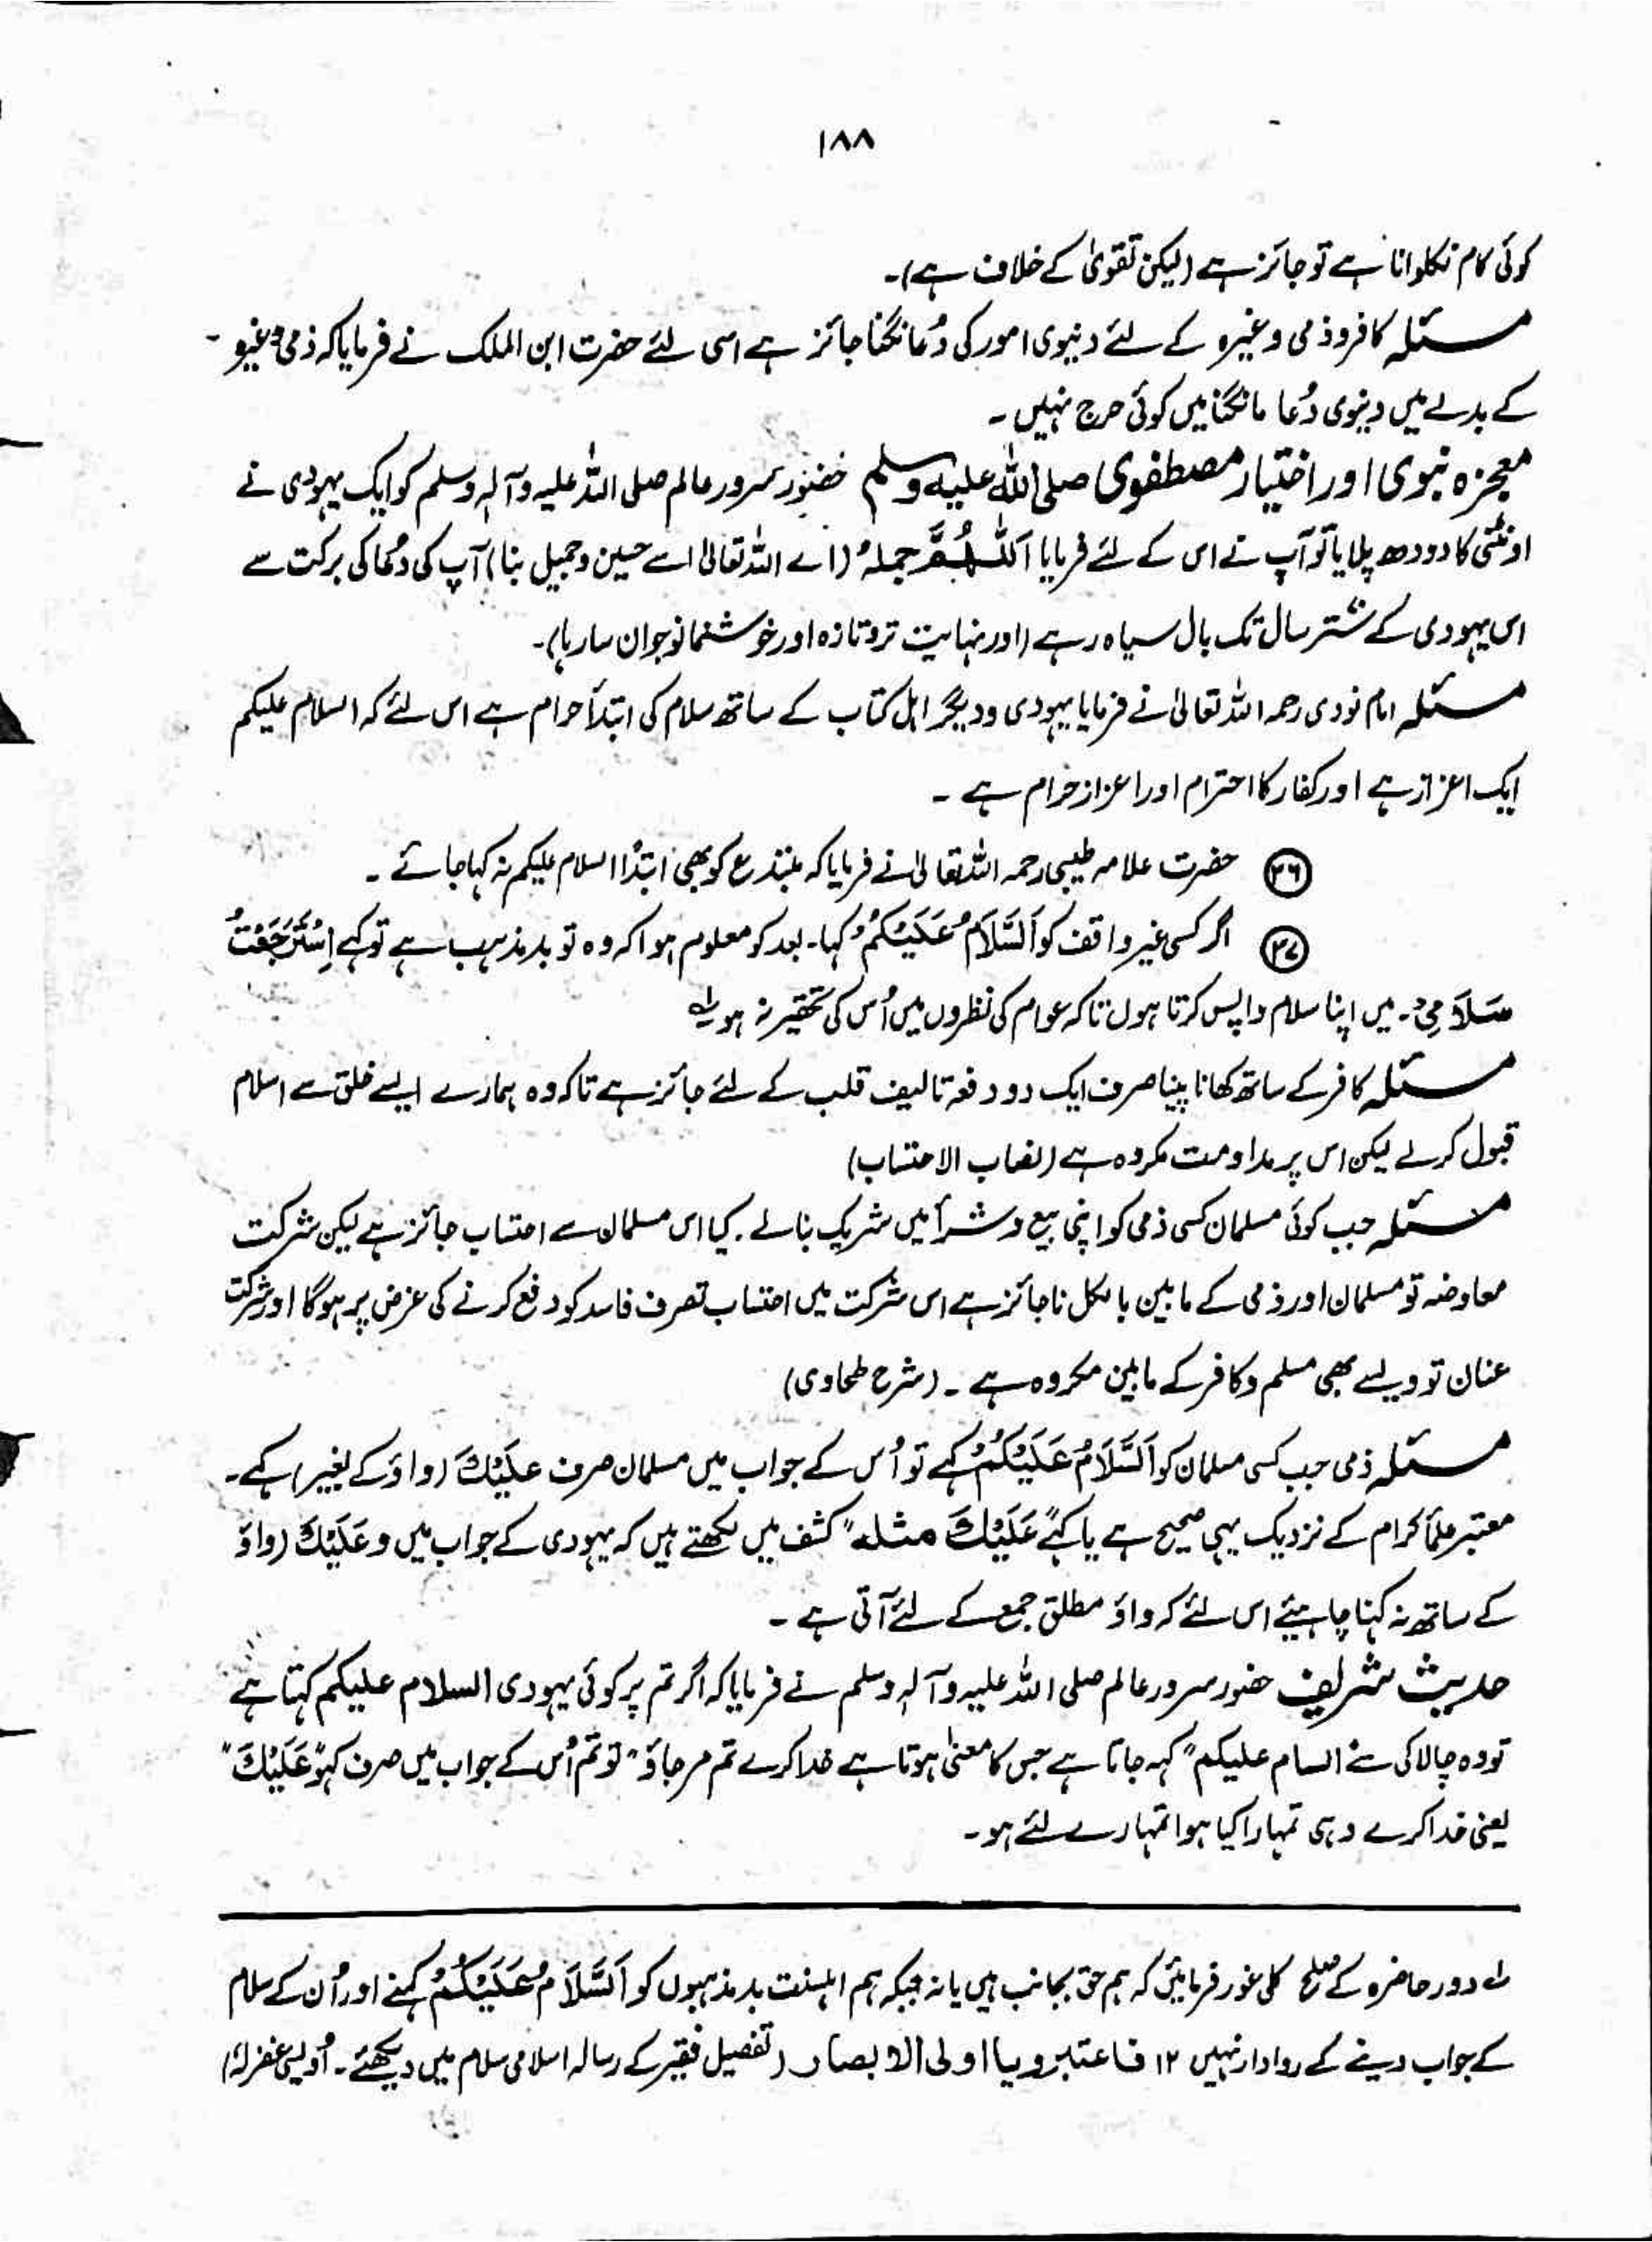 ۱۸۸
کوئی کام نکلوانا ہے تو جائز ہے (لیکن تقویٰ کے خلاف ہے)۔
مسئلہ کافر و ذمی وغیرہ کے لئے دنیوی امور کی دُعا مانگنا جائز ہے اسی لئے حضرت ابن الملک نے فرمایا کہ ذمی وغیرہ
کے بدلے میں دنیوی دُعا مانگنا میں کوئی حرج نہیں ۔
معجزہ نبوی اور اختیار مصطفوی صلی اللہ علیہ وسلم حضور سرور عالم صلی اللہ علیہ وآلہ وسلم کو ایک یہودی نے
اونٹنی کا دودھ پلایا تو آپ نے اس کے لئے فرمایا اَللّٰہُمَّ جملہٗ (اے اللہ تعالیٰ اسے حسین و جمیل بنا) آپ کی دُعا کی برکت سے
اس یہودی کے ستّر سال تک بال سیاہ رہے (اور نہایت تروتازہ اور خوشنما نوجوان سا رہا)۔
مسئلہ امام نووی رحمہ اللہ تعالیٰ نے فرمایا یہودی و دیگر اہل کتاب کے ساتھ سلام کی ابتدأ حرام ہے اس لئے کہ السلام علیکم
ایک اعزاز ہے اور کفار کا احترام اور اعزاز حرام ہے ۔
۳۶ حضرت علامہ طیبی رحمہ اللہ تعالیٰ نے فرمایا کہ مبتدع کو بھی ابتدًا السلام علیکم نہ کہا جائے ۔
۳۷ اگر کسی غیر واقف کو اَلسَّلَامُ عَلَیْکُمْ کہا۔ بعد کو معلوم ہوا کہ وہ تو بدمذہب ہے تو کہے اِسْتَرْجَعْتُ
سَلَامِیْ۔ میں اپنا سلام واپس کرتا ہوں تاکہ عوام کی نظروں میں اُس کی تحقیر نہ ہو لہ
مسئلہ کافر کے ساتھ کھانا پینا صرف ایک دو دفعہ تالیف قلب کے لئے جائز ہے تاکہ وہ ہمارے ایسے خلق سے اسلام
قبول کرلے لیکن اس پر مداومت مکروہ ہے (نصاب الاحتساب)
مسئلہ جب کوئی مسلمان کسی ذمی کو اپنی بیع و شرأ میں شریک بنالے ۔ کیا اس مسلمان سے احتساب جائز ہے لیکن شرکت
معاوضہ تو مسلمان اور ذمی کے مابین بالکل ناجائز ہے اس شرکت میں احتساب تصرف فاسد کو دفع کرنے کی غرض پر ہوگا اور شرکت
عنان تو ویسے بھی مسلم و کافر کے مابین مکروہ ہے ۔ (شرح طحاوی)
مسئلہ ذمی جب کسی مسلمان کو اَلسَّلَامُ عَلَیْکُمْ کہے تو اُس کے جواب میں مسلمان صرف عَلَیْكَ (واؤ کے بغیر) کہے۔
معتبر علمأ کرام کے نزدیک یہی صحیح ہے یا کہے "عَلَیْكَ مثلہ" کشف میں لکھتے ہیں کہ یہودی کے جواب میں وعَلَیْكَ (واؤ
کے ساتھ نہ کہنا چاہیئے اس لئے کہ واؤ مطلق جمع کے لئے آتی ہے ۔
حدیث شریف حضور سرور عالم صلی اللہ علیہ وآلہ وسلم نے فرمایا کہ اگر تم پر کوئی یہودی السلام علیکم کہتا ہے
تو وہ چالاکی سے السام علیکم" کہہ جاتا ہے جس کا معنیٰ ہوتا ہے خدا کرے تم مرجاؤ" تو تم اُس کے جواب میں صرف کہو "عَلَیْكَ"
یعنی خدا کرے وہی تمہارا کیا ہوا تمہارے لئے ہو۔
لہ دور حاضرہ کے صلح کلی غور فرمائیں کہ ہم حق بجانب ہیں یا نہ جبکہ ہم اہلسنت بدمذہبوں کو اَلسَّلَامُ عَلَیْکُمْ کہنے اور اُن کے سلام
کے جواب دینے کے روادار نہیں ۱۲ فاعتبرو یا اولی الابصار (تفصیل فقیر کے رسالہ اسلامی سلام میں دیکھئے ۔ اُویسی غفرلہٗ)